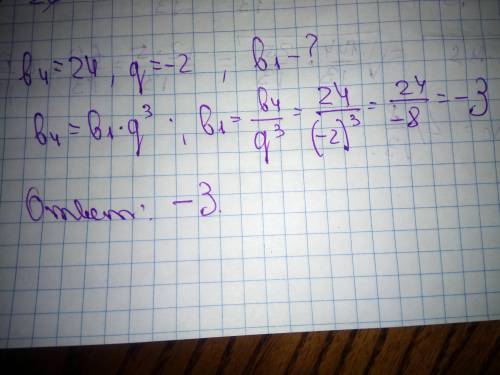 b₄=24, q=-2, b₁-?
b₄=b₁·q³; b₁=b₄/q³=24/(-2)³=24/-8=-3
Ответ: -3.